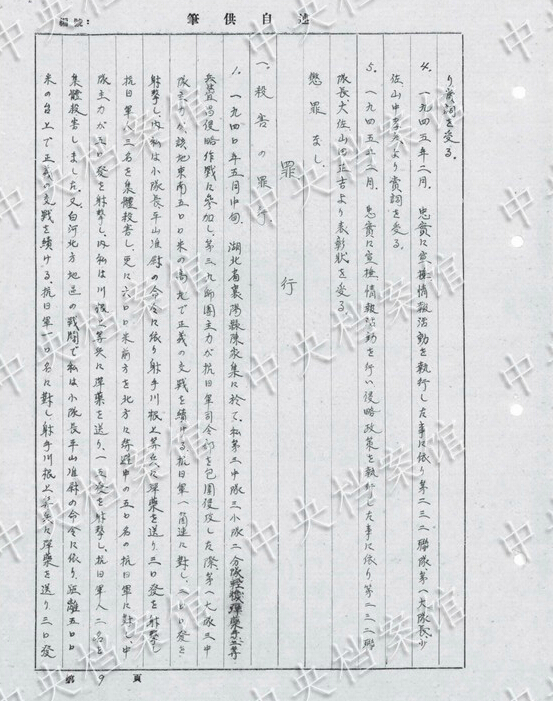 述自供筆
編號:
り賞詞を受る.
4. 一九四五年二月. 忠實に宣撫情報活動を執行した事に依り第二三二聯隊第一大隊長少
佐山中孝夫より賞詞を受る.
5. 一九四五年二月. 忠實に宣撫情報活動を行い侵略政策を執行した事に依り第二三二聯
隊長大佐山田正吉より表彰狀を受る
懲罪なし.
罪行
一. 殺害の罪行.
1. 一九四〇年五月中旬. 湖北省襄陽縣陳家集に於て. 私第三中隊三小隊二分隊
兵置昌侵略作戰に參加し. 第三九師團主力が抗日軍司令部を包圍侵攻した際第一大隊三中
隊主力が. 該地東南五〇〇米の高地で正義の交戰を續ける. 抗日軍一箇連に對し. 二〇〇發を
射擊し. 內私は小隊長平山准尉の命令に依り射手川根上等兵に彈藥を送り. 三〇發を射擊し
抗日軍人三名を集體殺害し. 更に六〇〇米前方を北方に待避中の五〇名の抗日軍に對し. 中
隊主力が三〇發を射擊し. 內私は川根上等兵に彈藥を送り. 一五發を射擊し. 抗日軍人二名を
集體殺害しました. 又白河北方地區の戰鬪で私は小隊長平山准尉の命令に依り. 距離五〇〇
米の台上で正義の交戰を續ける. 抗日軍一〇名に對し射手川根上等兵に彈藥を送り三〇發
第9頁
中央档案馆